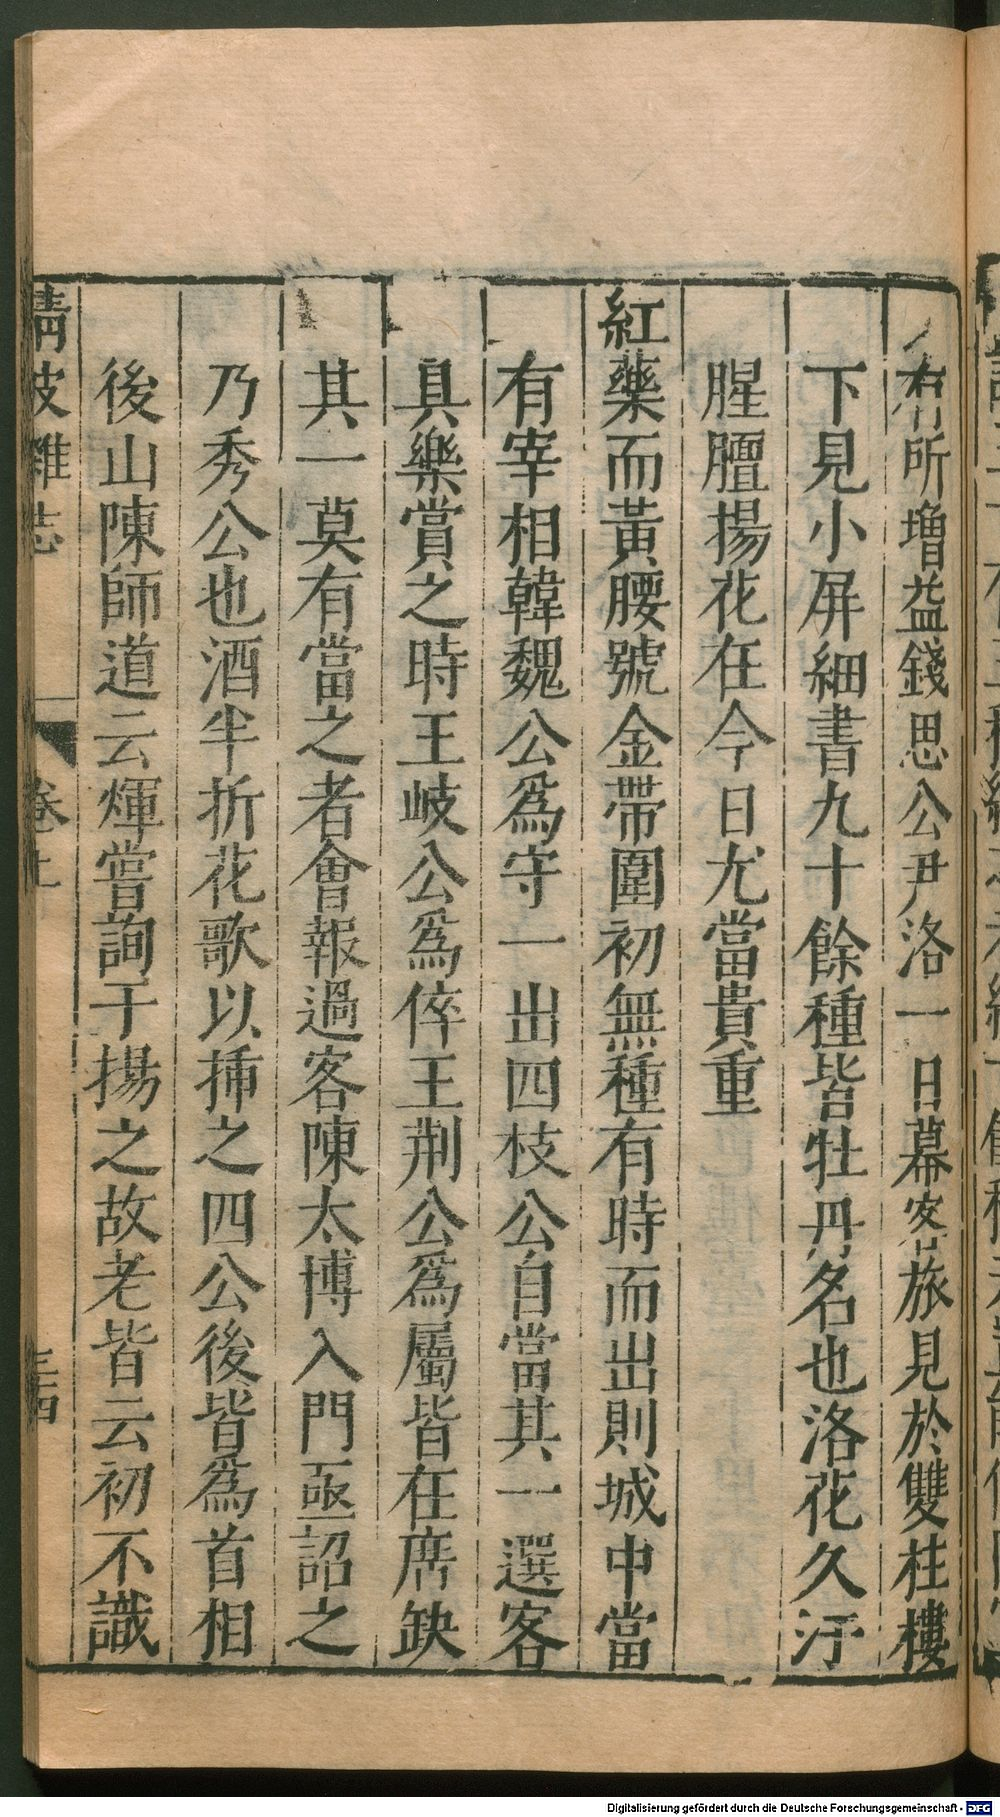 有所增益錢思公尹洛一日幕客旅見於雙桂樓
下見小屏細書九十餘種皆牡丹名也洛花久汙
腥膻揚花在今日尤當貴重
紅藥而黃腰號金帶圍初無種有時而出則城中當
有宰相韓魏公爲守一出四枝公自當其一選客
具樂賞之時王岐公爲倅王荆公爲屬皆在席缺
其一莫有當之者會報過客陳太博入門亟詔之
乃秀公也酒半折花歌以揷之四公後皆爲首相
後山陳師道云煇嘗詢于揚之故老皆云初不識
清波雜志 卷上 三十四
Digitalisierung gefördert durch die Deutsche Forschungsgemeinschaft - DFG